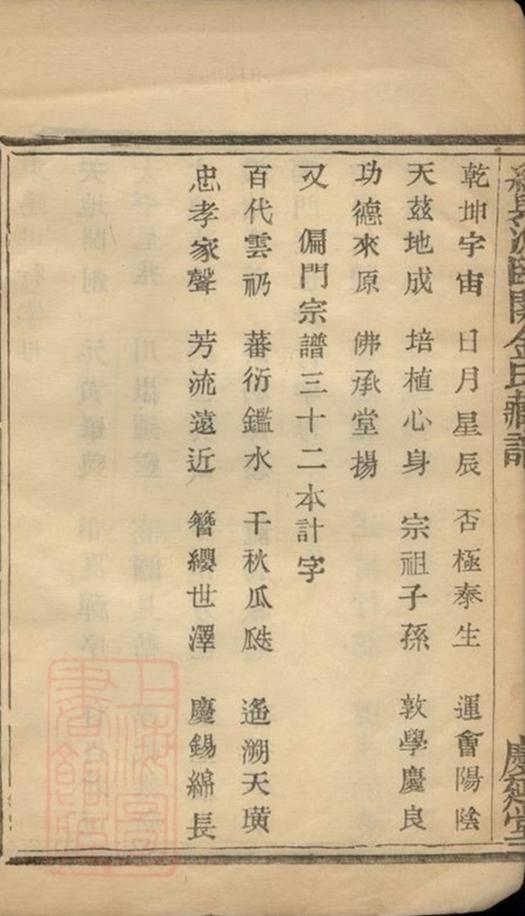 乾坤宇宙 日月星辰 否極泰生 運會陽陰
天茲地成 培植心身 宗祖子孫 敦學慶良
功德來原 佛承堂揚
又 偏門宗譜三十二本計字
百代雲礽 蕃衍鑑水 千秋瓜瓞 遙溯天璜
忠孝家聲 芳流遠近 簪纓世澤 慶錫綿長